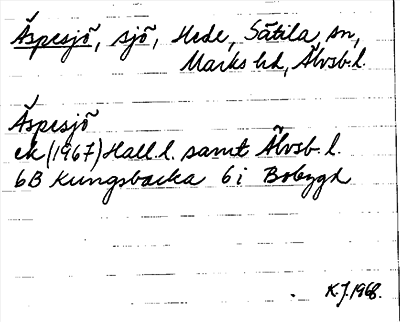 Äspesjö, sjö, Hede, Sätila sn,
Marks hd, Älvsb. l.
Äspesjö
ek (1967) Hall. l. samt Älvsb. l.
6B Kungsbacka 6 i Bobygd
K.J. 1968.